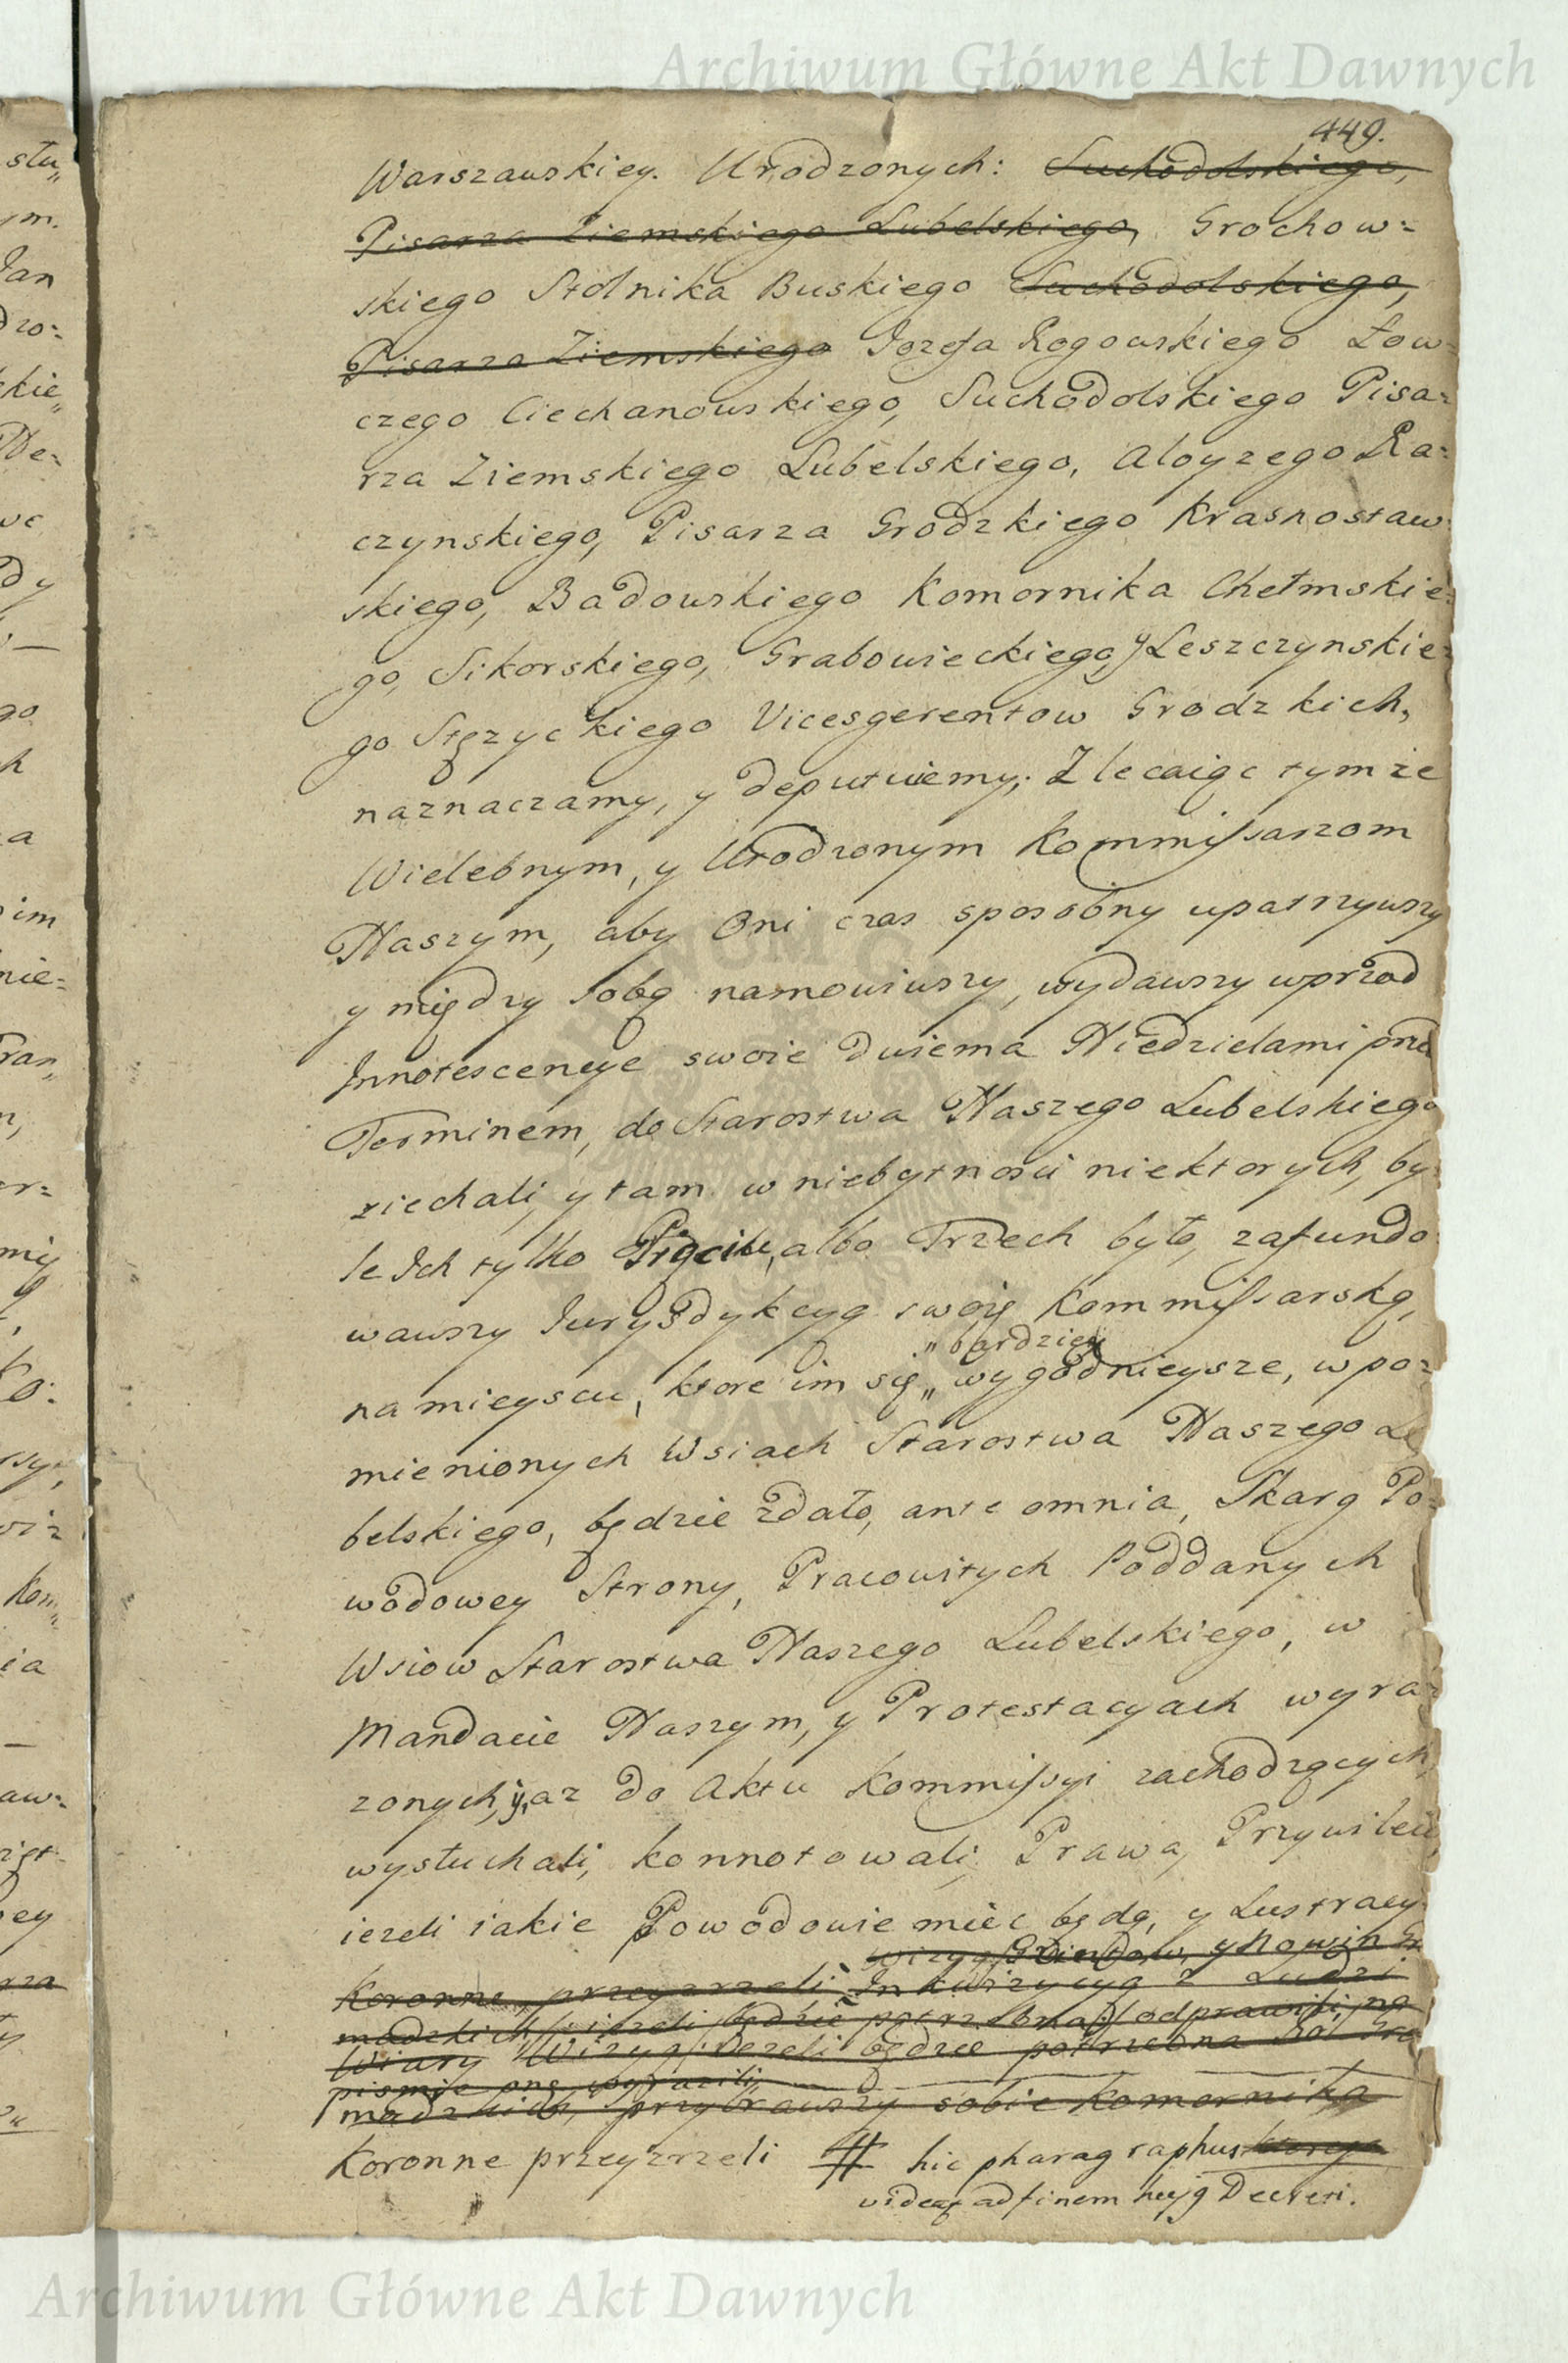 Archiwum Główne Akt Dawnych
449.
Warszawskiey. Urodzonych: Suchodolskiego,
Pisarza Ziemskiego Lubelskiego, Grochow=
skiego Stolnika Buskiego Suchodolskiego,
Pisarza Ziemskiego Jozefa Rogowskiego Łow=
czego Ciechanowskiego, Suchodolskiego Pisa=
rza Ziemskiego Lubelskiego, Aloyzego Ra=
czynskiego, Pisarza Grodzkiego Krasnostaw
skiego, Badowskiego Komornika Chełmskie=
go, Sikorskiego, Grabowieckiego, y Leszczynskie=
go Stęzyckiego Vicesgerentow Grodzkich,
naznaczamy, y deputuiemy; Zlecaiąc tymże
Wielebnym, y Urodzonym Kommissarzom
Naszym, aby Oni czas sposobny upatrzywszy
y między sobą namowiwszy, wydawszy wprzod
Innotescencye swoie dwiema Niedzielami przed
Terminem, do Starostwa Naszego Lubelskiego
ziechali, y tam w niebytnosci niektorych, by
le Ich tylko Pięciu, albo Trzech było, zafundo
wawszy Jurysdykcyą swoię Kommissarską,
" bardziey
na mieyscu, ktore im się " wygodnieysze, w po=
mienionych Wsiach Starostwa Naszego Lu
belskiego, będzie zdało, ante omnia, Skarg Po=
wodowey Strony, Pracowitych Poddanych
Wsiow Starostwa Naszego Lubelskiego, w
Mandacie Naszym, y Protestacyach wyra=
zonych, y az do Aktu Kommissyi zachodzących
wysłuchali, konnotowali, Prawa, Przywileie,
iezeli iakie Powodowie miec będą, y Lustracy
wizyą Gruntow, y Nowin
Koronne, przeyzrzeli Inkwizycyą z Ludzi
iezeli będzie potrzebna odprawili, na
Wiary Wizyą iezeli będzie potrzebna
pismie onę wyrazili,
przybrawszy sobie Komornika
Koronne przeyzrzeli # hic pharagraphus
ad finem Decreti.
Archiwum Główne Akt Dawnych